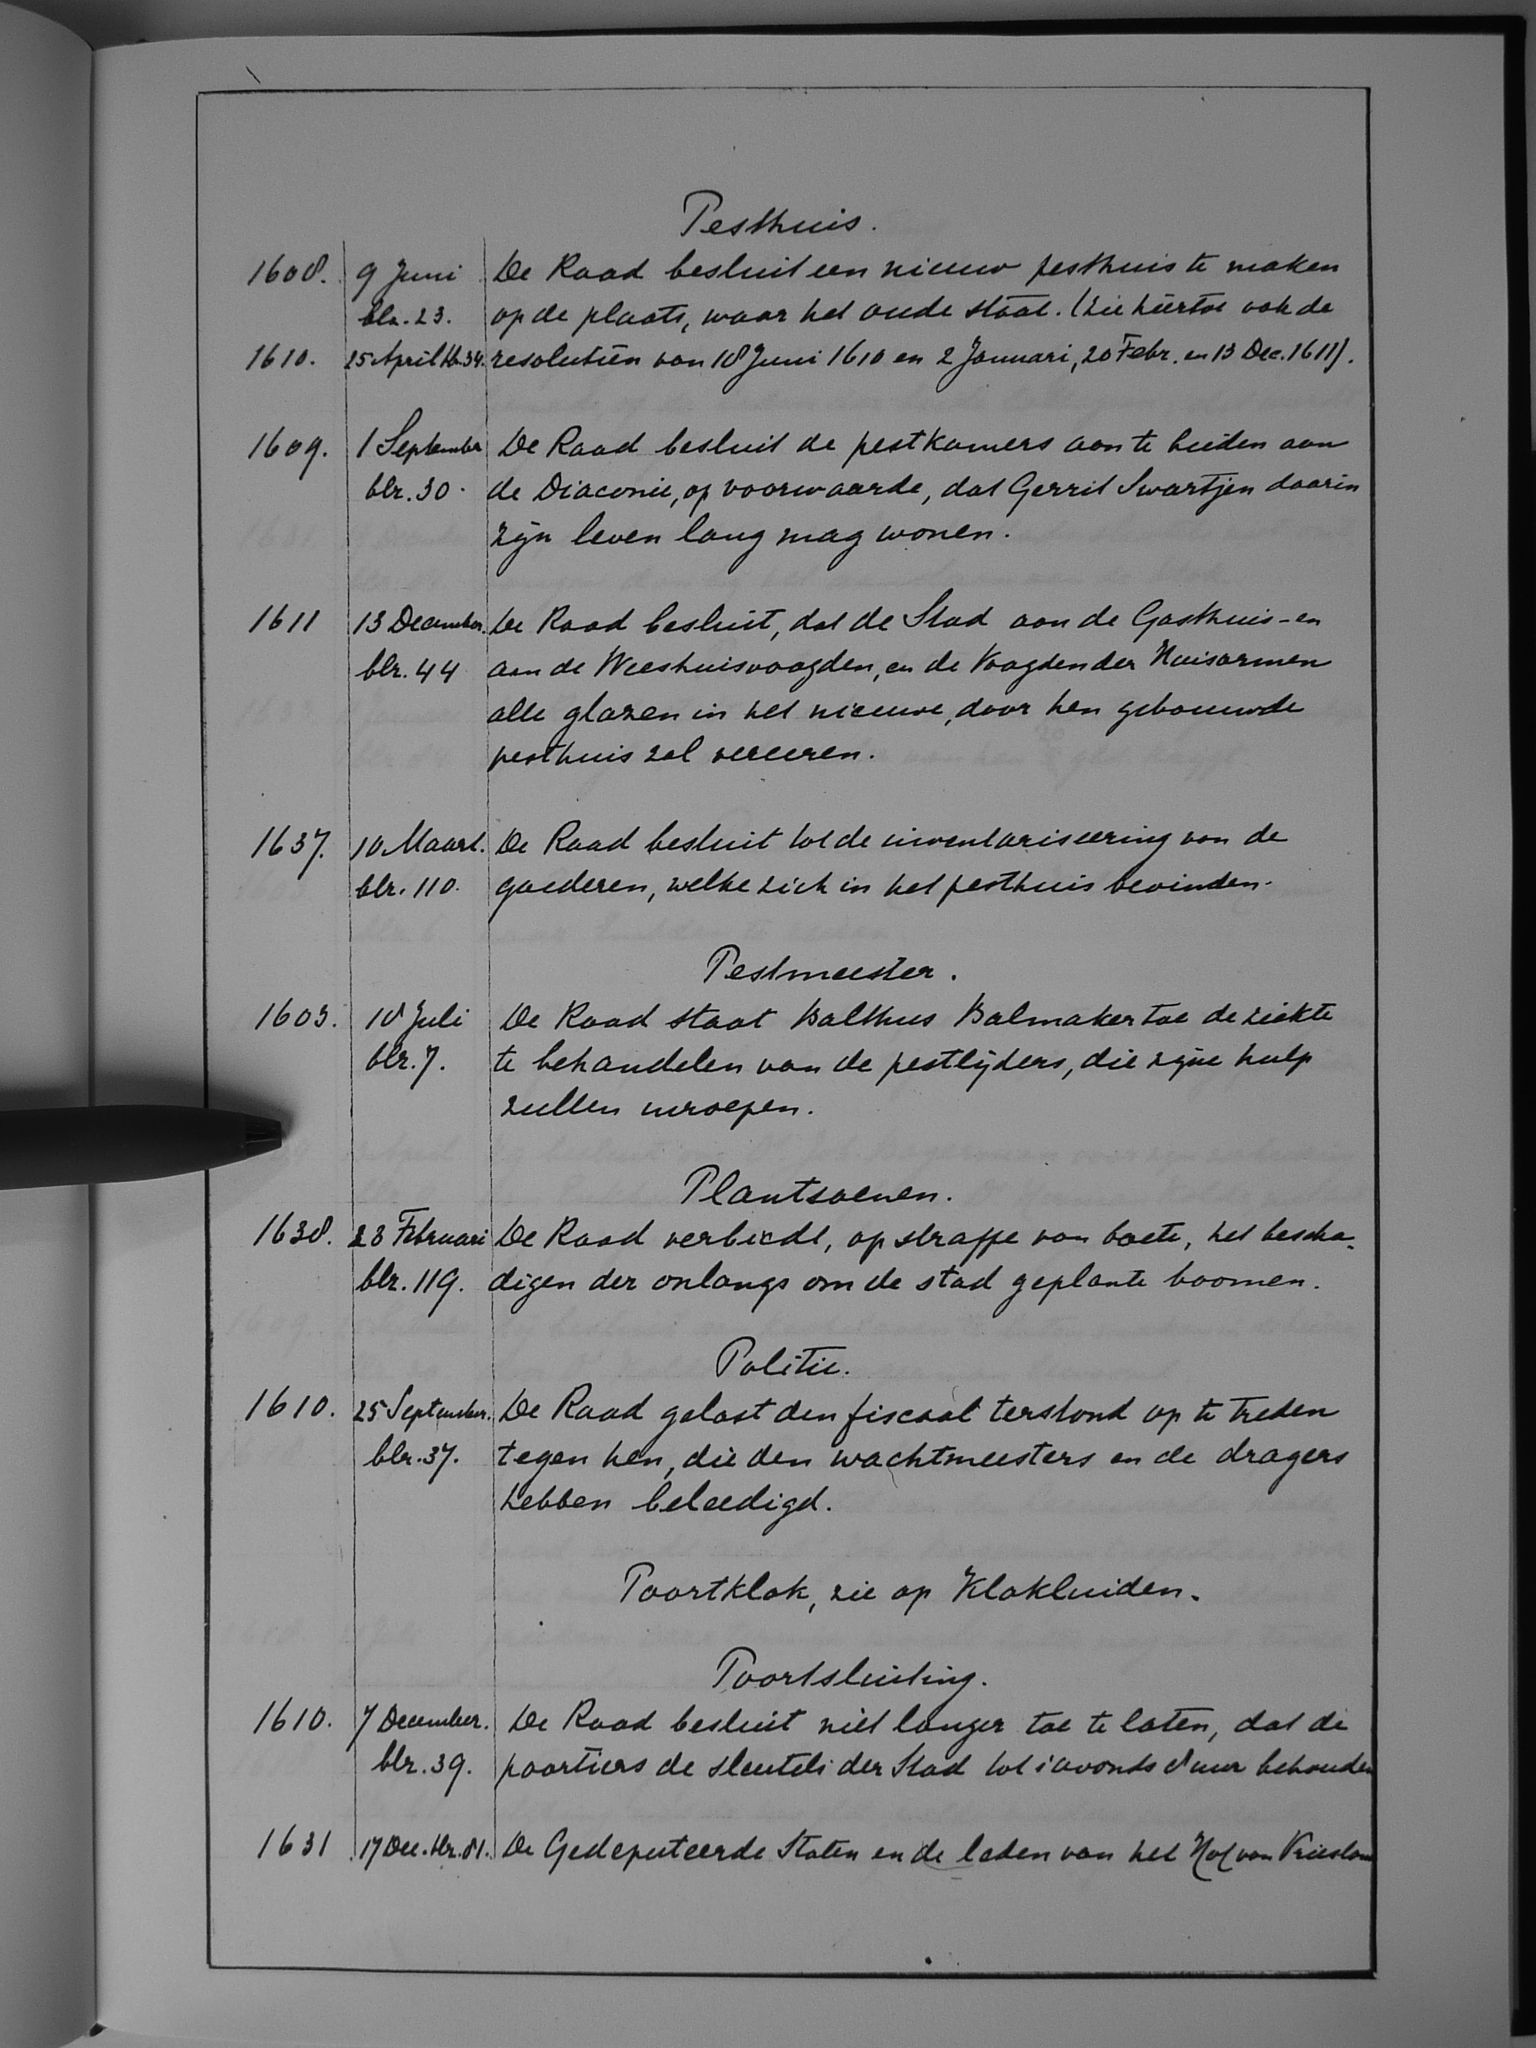 Pesthuis.
1608. 9 Juni De Raad besluit een nieuw pesthuis te maken
blz. 23. op de plaats, waar het oude staat. (Zie hiertoe ook de
1610. 25 April blz. 34. resolutiën van 18 Juni 1610 en 2 Januari, 20 Febr. en 13 Dec. 1611).
1609. 1 September De Raad besluit de pestkamers aan te bieden aan
blz. 30. de Diaconie, op voorwaarde, dat Gerrit Swartjen daarin
zijn leven lang mag wonen.
1611 13 December. De Raad besluit, dat de Stad aan de Gasthuis- en
blz. 44 aan de Weeshuisvoogden, en de Voogden der Huisarmen
alle glazen in het nieuwe, door hen gebouwde
pesthuis zal vereeren.
1637. 10 Maart. De Raad besluit tot de inventariseering van de
blz. 110. goederen, welke zich in het pesthuis bevinden.
Pestmeester.
1603. 18 Juli De Raad staat Balthus Balmaker toe de ziekte
blz. 7. te behandelen van de pestlijders, die zijne hulp
zullen inroepen.
Plantsoenen.
1638. 28 Februari De Raad verbiedt, op straffe van boete, het bescha-
blz. 119. digen der onlangs om de stad geplante boomen.
Politie.
1610. 25 September. De Raad gelast den fiscaal terstond op te treden
blz. 37. tegen hen, die den wachtmeesters en de dragers
hebben beleedigd.
Poortklok, zie op Klokluiden.
Poortsluiting.
1610. 7 December. De Raad besluit niet langer toe te laten, dat de
blz. 39. poortiers de sleutels der Stad tot 's avonds 8 uur behouden
1631 17 Dec. blz. 81. De Gedeputeerde Staten en de leden van het Hof van